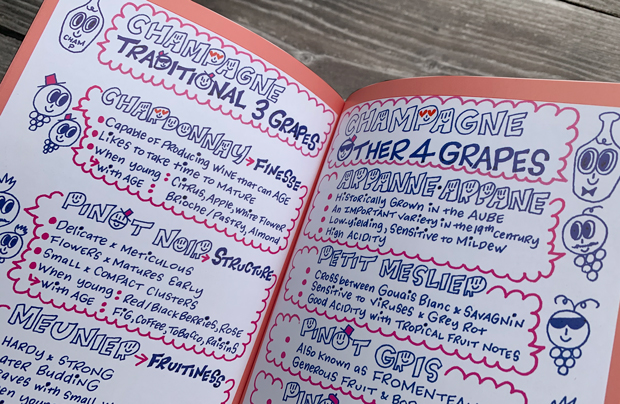 CHAM
P
CHAMPAGNE
TRADITIONAL 3 GRAPES
CHARDONNAY → FINESSE
Capable of Producing Wine that can AGE
Likes to take time to MATURE
When young : Citrus, Apple, White Flower
with AGE : Brioche / Pastry, Almond
PINOT NOIR → STRUCTURE
Delicate & Meticulous
Flowers & Matures Early
Small & Compact Clusters
When young : Red / BlackBerries, ROSE
With AGE : FiG, Coffee, Tobacco, Raisins
MEUNIER → FRUITINESS
HARDY & STRONG
Budding
with small
young
CHAMPAGNE
OTHER 4 GRAPES
ARBANNE · ARBANE
Historically Grown in the AUBE
An IMPORTANT variety in the 19th century
Low-yielding, Sensitive to Mildew
High Acidity
PETIT MESLIER
Cross between Gouais Blanc & SAVAGNIN
Sensitive to Viruses & Grey Rot
Good Acidity with Tropical Fruit Notes
PINOT GRIS
Also known as FROMENTEAU
Generous Fruit &